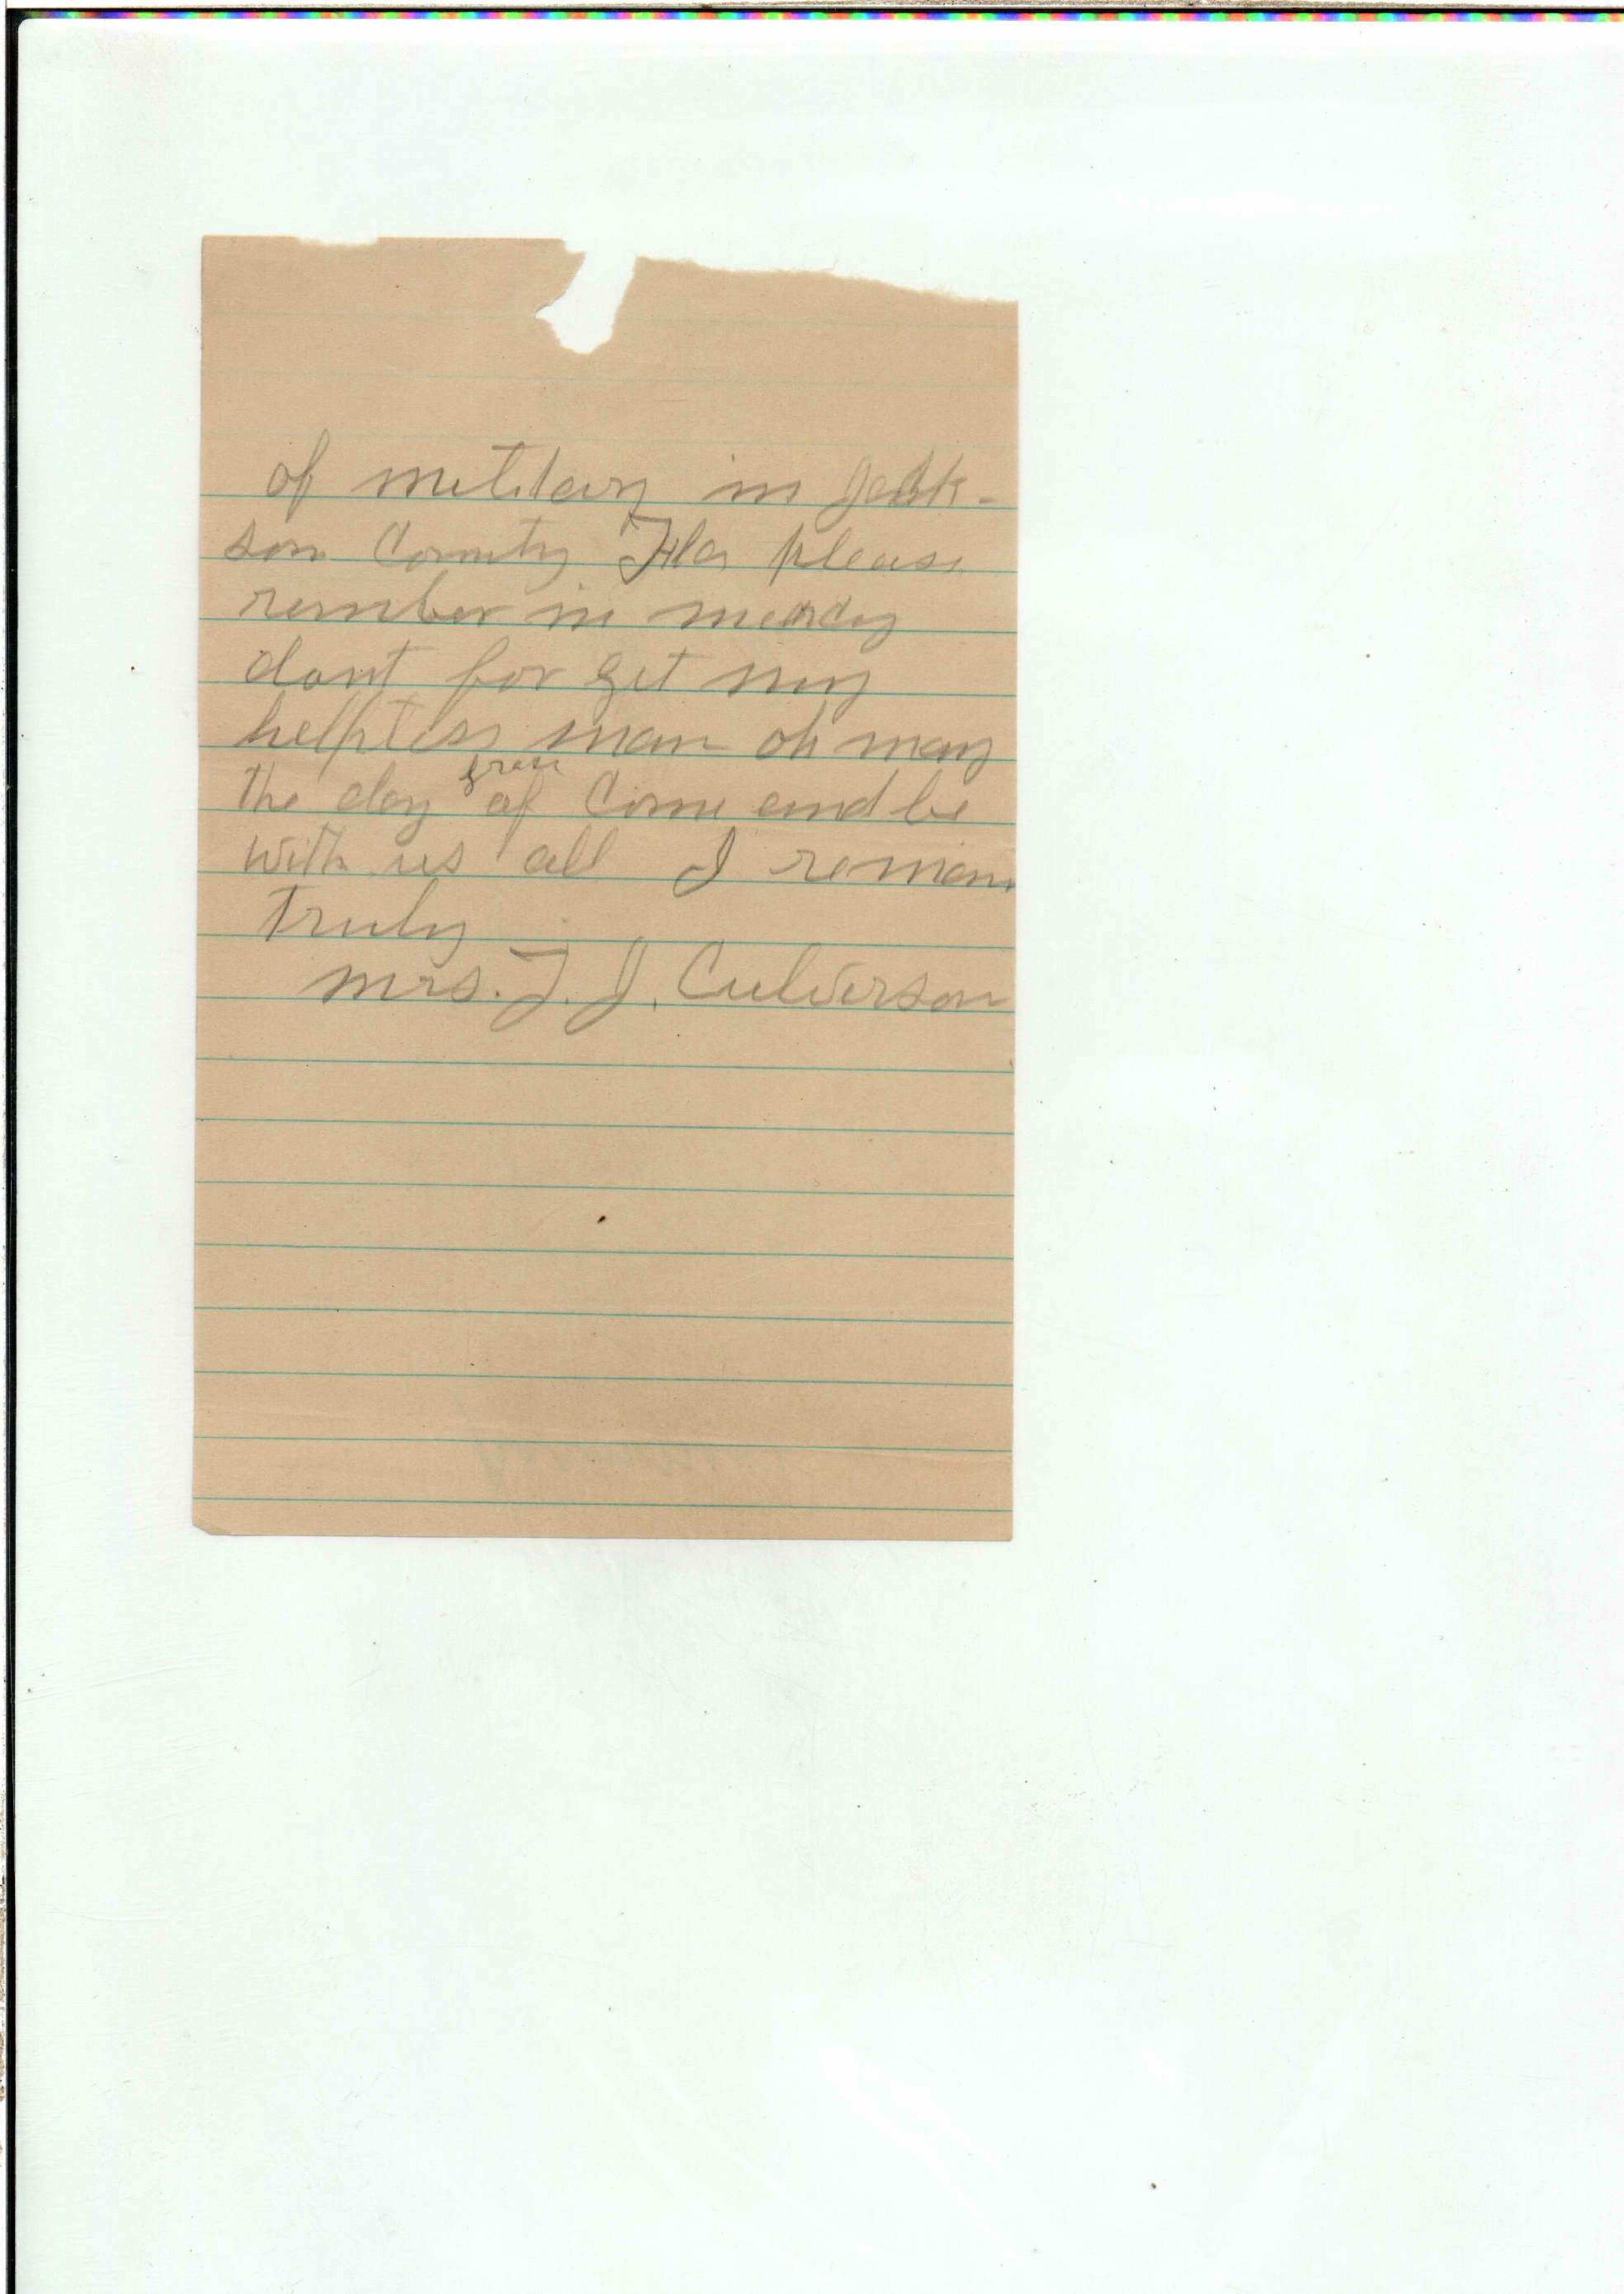 of military in Jack-
son County Fla please
rember in mercy
dont for get my
helpless man oh may
the day of come and be
with us all I remain
truly
Mrs. J. J. Culverson